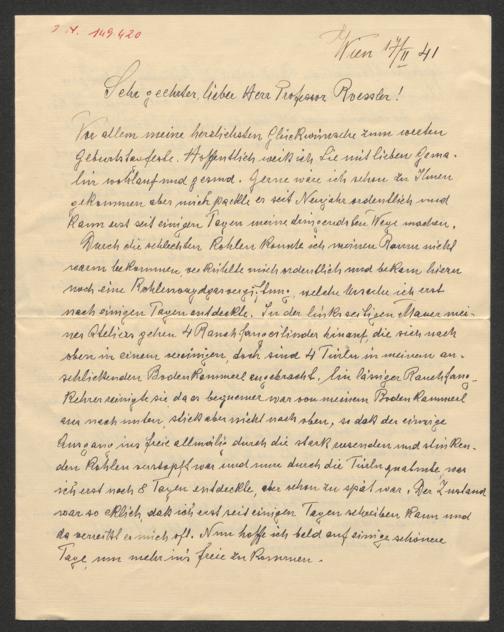 I.N. 149.420
Wien 17/II 41
Sehr geehrter, lieber Herr Professor Roessler!
Vor allem meine herzlichsten Glückwünsche zum werten
Geburtstagsfeste. Hoffentlich weiß ich Sie mit lieben Gema-
lin wohlauf und gesund. Gerne wäre ich schon zu Ihnen
gekommen aber mich packte es seit Neujahr ordentlich und
kann erst seit einigen Tagen meine dringendsten Wege machen.
Durch die schlechten Kohlen konnte ich meinen Raum nicht
warm bekommen, verkühlte mich ordentlich und bekam hiezu
noch eine Kohlenoxydgasvergiftung, welche Ursache ich erst
nach einigen Tagen entdeckte. In der linksseitigen Mauer mei-
nes Ateliers gehen 4 Rauchfangcilinder hinauf, die sich nach
oben in einem vereinigen, doch sind 4 Türln in meinem an-
schließenden Bodenkammerl angebracht. Ein lässiger Rauchfang-
kehrer reinigte sie da es bequemer war von meinem Bodenkammerl
aus nach unten, stieß aber nicht nach oben, so daß der einzige
Ausgang ins freie allmälig durch die stark russenden und stinken-
den Kohlen verstopft war und nun durch die Türln qualmte was
ich erst nach 8 Tagen entdeckte, aber schon zu spät war. Der Zustand
war so eklich, daß ich erst seit einigen Tagen schreiben kann und
da verreißt es mich oft. Nun hoffe ich bald auf einige schönere
Tage, um mehr in's freie zu kommen.